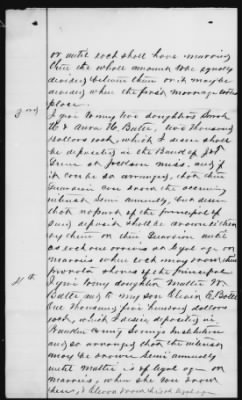 or until each shall have married
then the whole amount to be equally
divided between them or it may be
divided when the first marriage takes
place.
3rd
I give to my two daughters Sarah
& Anna Batte, two thousand
dollars each, which I desire shall
be deposited in the Bank of
at Jackson Miss. and if
it can be so arranged, that their
Guardian can draw the accruing
interest semi annually, but desire
that no part of the principal of
said deposit shall be drawn either
by them or their Guardian until
as each one arrives at legal age or
marries when each may draw their
prorata share of the principal
4th
I give to my daughter Mattie W.
Batte and to my son E. Batte
One thousand five hundred dollars
each, which I desire deposited in
County Savings Institution
and so arranged that the interest
may be drawn Semi annually
until Mattie is of legal age or
marries, when she can draw
hers,